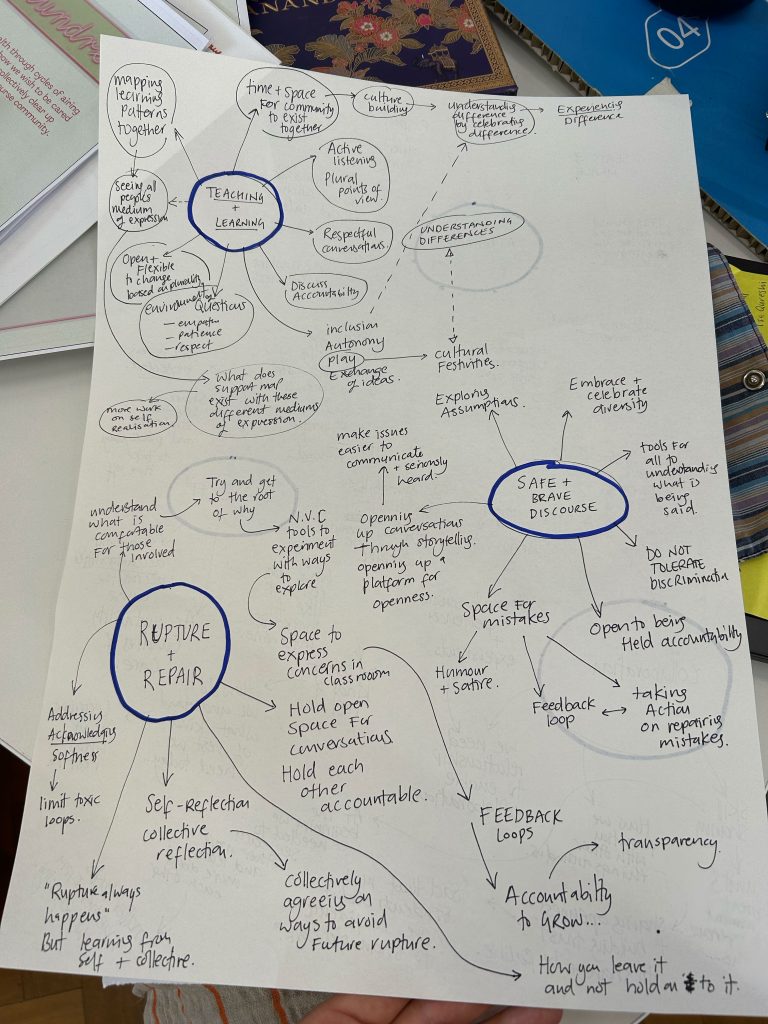 04
lth through cycles of airing
how we wish to be cared
ollectively clear up
urse community.
mapping
learning
patterns
together
time + space
For community
to exist
together
culture
building
understanding
difference
by celebrating
difference.
Experiencing
Difference
Seeing all
peoples
medium
of expression
TEACHING
+
LEARNING
Active
listening
Plural
points of
view.
Respectful
conversations.
UNDERSTANDING
DIFFERENCES
Open +
Flexible
to change
based on plurality
Discuss
Accountability
environment of
Questions
— empathy
— patience
— respect
inclusion
Autonomy
play
Exchange
of ideas.
cultural
Festivities.
What does
support map
exist with these
different mediums
of expression.
more work
on self
Realisation
Exploring
Assumptions.
Embrace +
celebrate
diversity
make issues
easier to
communicate
+ seriously
heard.
tools for
all to
understanding
what is
being
said.
SAFE +
BRAVE
DISCOURSE
DO NOT
TOLERATE
DISCRIMINATION
Try and get
to the root
of why
understand
what is
comfortable
For those
involved
N.V.C
tools to
experiment
with ways
to
explore
Openning
up conversations
through storytelling.
openning up a
platform for
openness.
Space For
mistakes
Open to being
Held accountability
Humour
+ Satire.
Feedback
loop
taking
Action
on repairing
mistakes.
RUPTURE
+
REPAIR
Space to
express
concerns in
classroom
Addressing
Acknowledging
softness
limit toxic
loops.
Hold open
Space For
conversations
Hold each
other
accountable.
Self-Reflection
collective
reflection.
FEEDBACK
LOOPS
transparency.
"Rupture always
happens"
But learning from
self + collective.
collectively
agreeing on
ways to avoid
Future rupture.
Accountability
to GROW...
How you leave it
and not hold on to it.